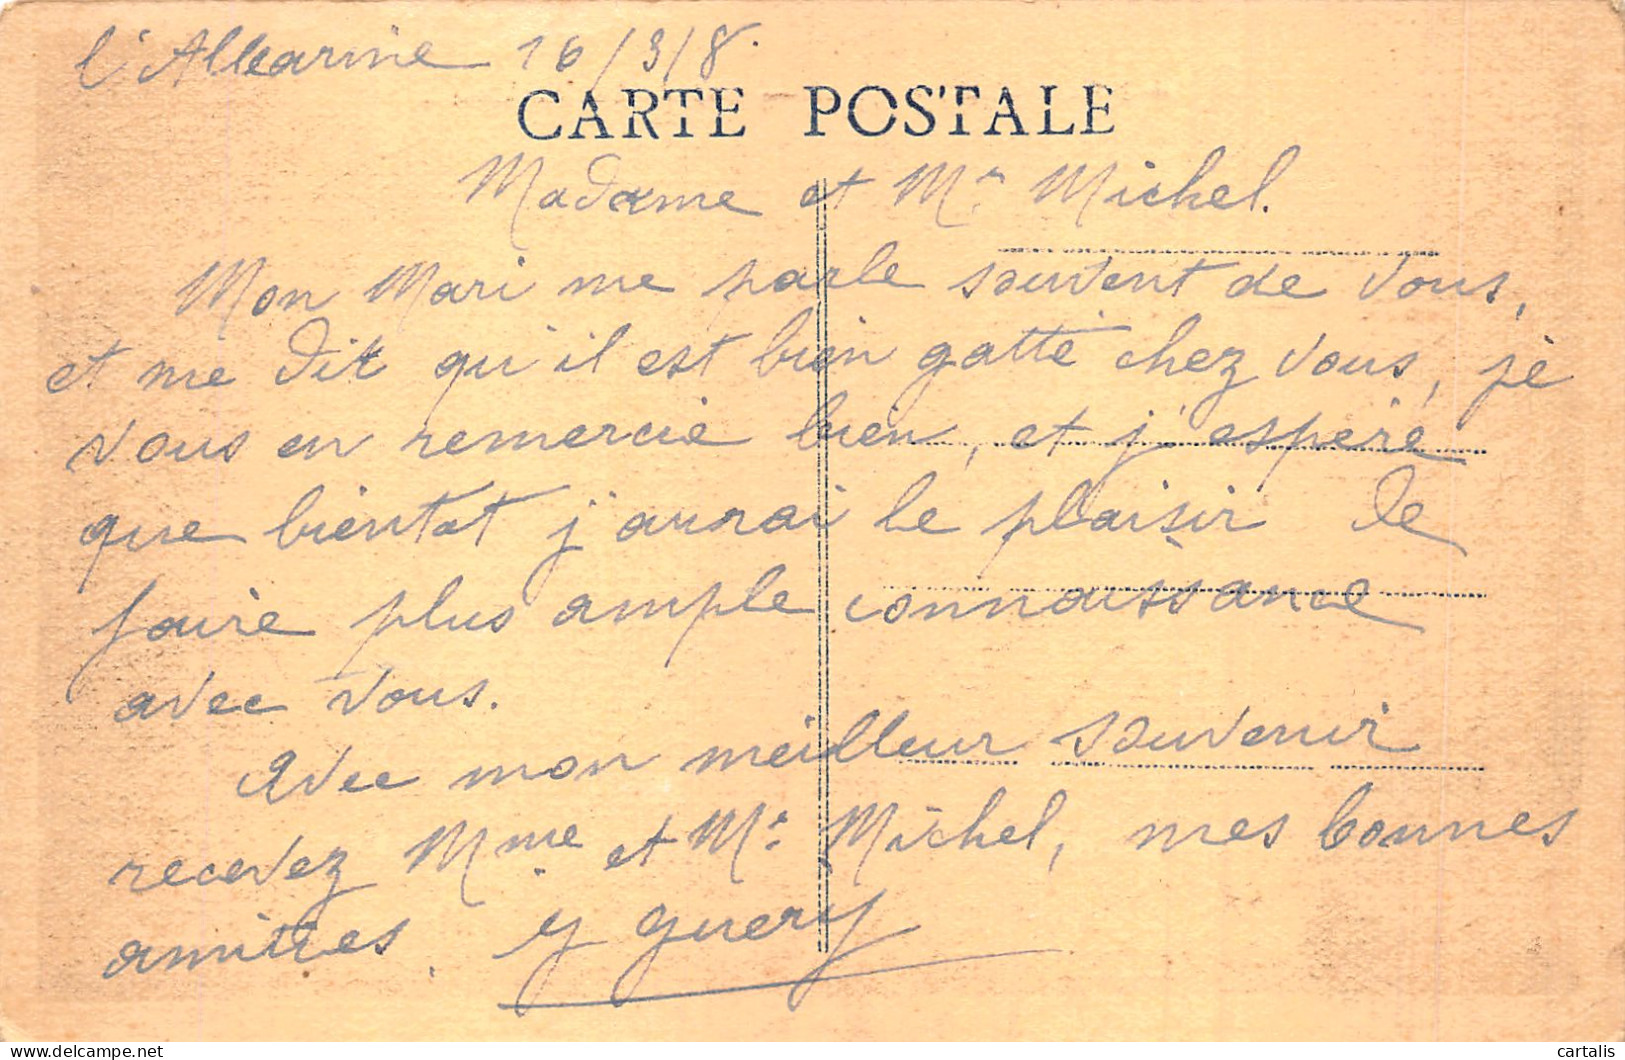 l'Albarine 16/3/8.
CARTE POSTALE
Madame et Mr Michel.
Mon Mari me parle souvent de vous,
et me dit qu'il est bien gatté chez vous, je
vous en remercie bien, et j'espère
que bientot j'aurai le plaisir de
faire plus ample connaissance
avec vous.
Avec mon meilleur souvenir
recevez Mme et Mr Michel, mes bonnes
amitiés. Y Guery
cartalis